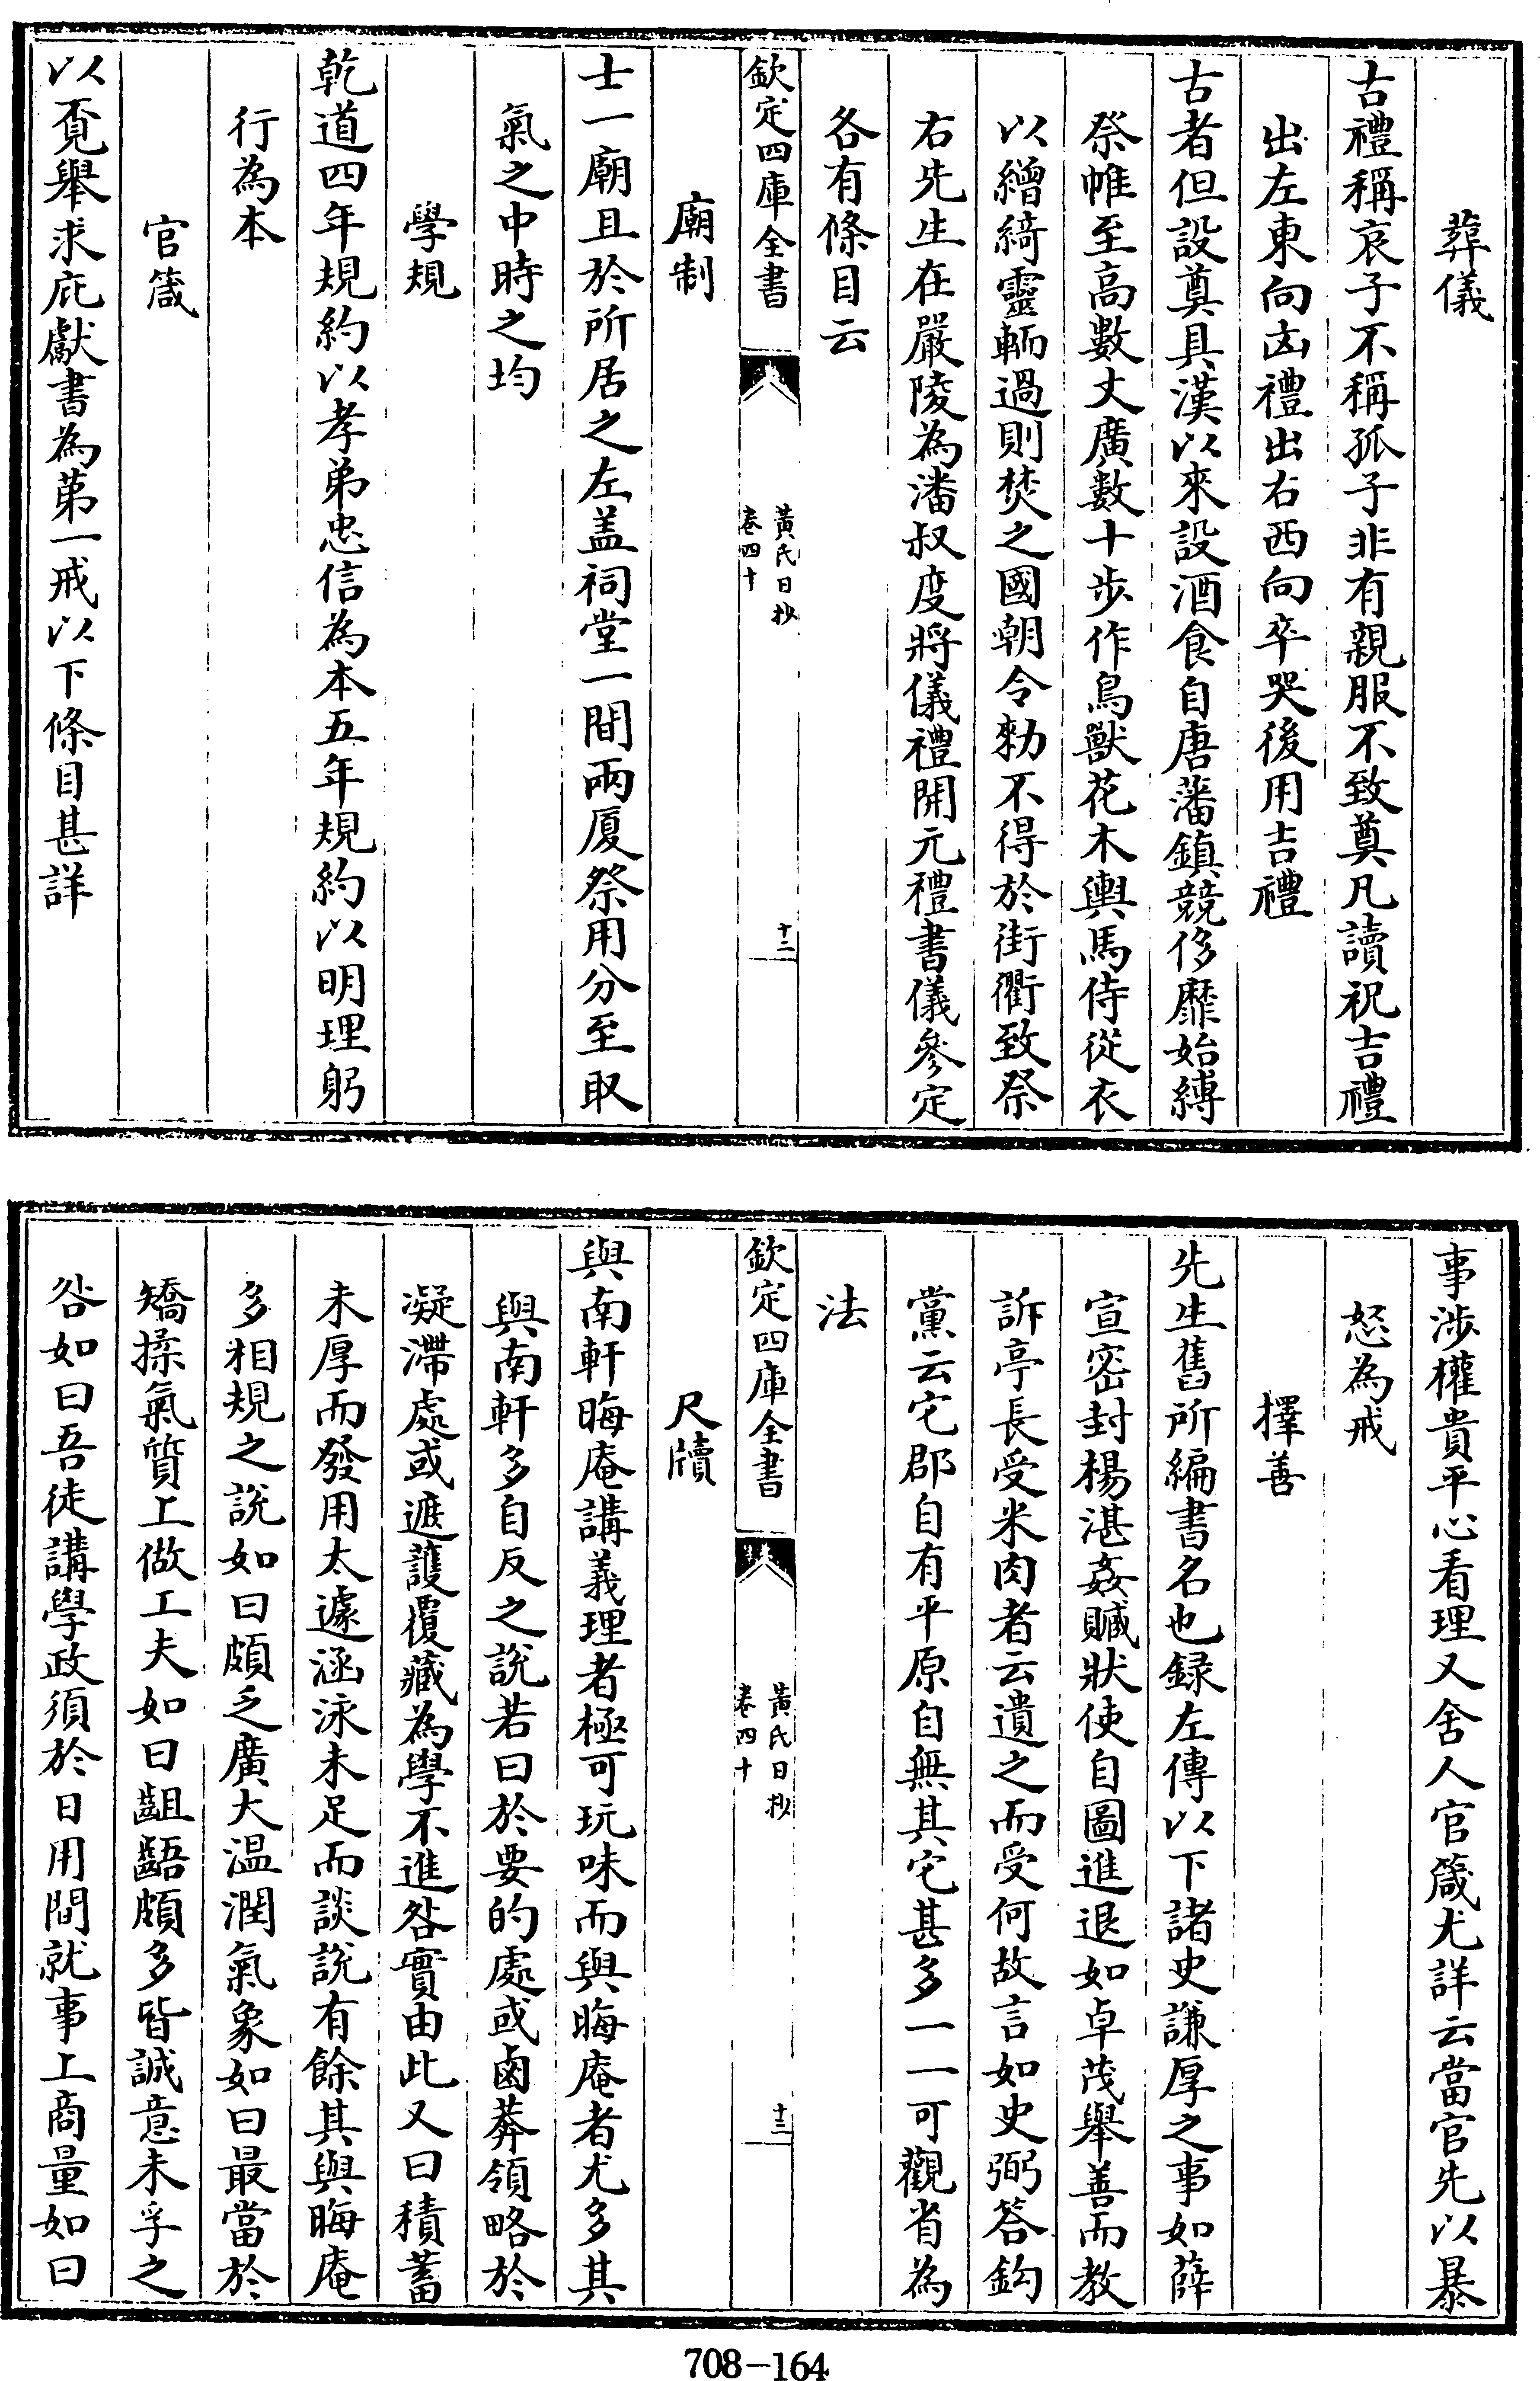 葬儀
古禮稱哀子不稱孤子非有親服不致奠凡讀祝吉禮
出左東向凶禮出右西向卒哭後用吉禮
古者但設奠具漢以來設酒食自唐藩鎮競侈靡始縛
祭帷至高數丈廣數十步作鳥獸花木輿馬侍從衣
以繒綺靈輀過則焚之國朝令勑不得於街衢致祭
右先生在嚴陵為潘叔度將儀禮開元禮書儀參定
各有條目云
欽定四庫全書
黃氏日抄
卷四十
十二
廟制
士一廟且於所居之左盖祠堂一間兩厦祭用分至取
氣之中時之均
學規
乾道四年規約以孝弟忠信為本五年規約以明理躬
行為本
官箴
以覔舉求庇獻書為第一戒以下條目甚詳
事涉權貴平心看理又舍人官箴尤詳云當官先以暴
怒為戒
擇善
先生舊所編書名也録左傳以下諸史謙厚之事如薛
宣密封楊湛姦贓狀使自圖進退如卓茂舉善而教
訴亭長受米肉者云遺之而受何故言如史弼答鈎
黨云它郡自有平原自無其它甚多一一可觀省為
法
欽定四庫全書
黃氏日抄
卷四十
十三
尺牘
與南軒晦庵講義理者極可玩味而與晦庵者尤多其
與南軒多自反之說若曰於要的處或鹵莽領略於
凝滯處或遮護覆藏為學不進咎實由此又曰積蓄
未厚而發用太遽涵泳未足而談說有餘其與晦庵
多相規之說如曰頗乏廣大温潤氣象如曰最當於
矯揉氣質上做工夫如曰齟齬頗多皆誠意未孚之
咎如曰吾徒講學政須於日用間就事上商量如曰
708-164